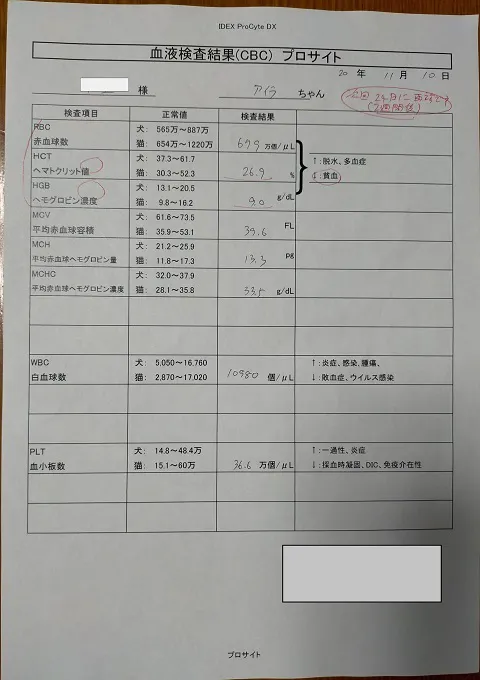 IDEX ProCyte DX
血液検査結果(CBC) プロサイト
20 年 11 月 10 日
様 アイラ ちゃん
次回 24日に
(2週間後)
検査項目 正常値 検査結果
RBC 犬: 565万～887万
赤血球数 猫: 654万～1220万 679 万個/μL
HCT 犬: 37.3～61.7 ↑:脱水、多血症
ヘマトクリット値 猫: 30.3～52.3 26.9 % ↓:貧血
HGB 犬: 13.1～20.5
ヘモグロビン濃度 猫: 9.8～16.2 9.0 g/dL
MCV 犬: 61.6～73.5
平均赤血球容積 猫: 35.9～53.1 39.6 FL
MCH 犬: 21.2～25.9
平均赤血球ヘモグロビン量 猫: 11.8～17.3 13.3 pg
MCHC 犬: 32.0～37.9
平均赤血球ヘモグロビン濃度 猫: 28.1～35.8 33.5 g/dL
WBC 犬: 5.050～16.760 ↑:炎症、感染、腫瘍、
白血球数 猫: 2.870～17.020 10980 個/μL ↓:敗血症、ウイルス感染
PLT 犬: 14.8～48.4万 ↑:一過性、炎症
血小板数 猫: 15.1～60万 36.6 万個/μL ↓:採血時凝固、DIC、免疫介在性
プロサイト